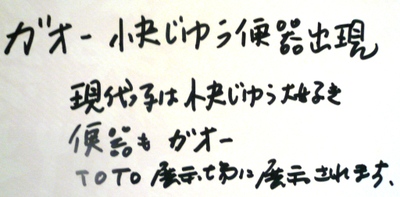 ガオー 快じゅう便器出現
現代っ子は快じゅう大好き
便器も ガオー
TOTO 展示場に展示されます.